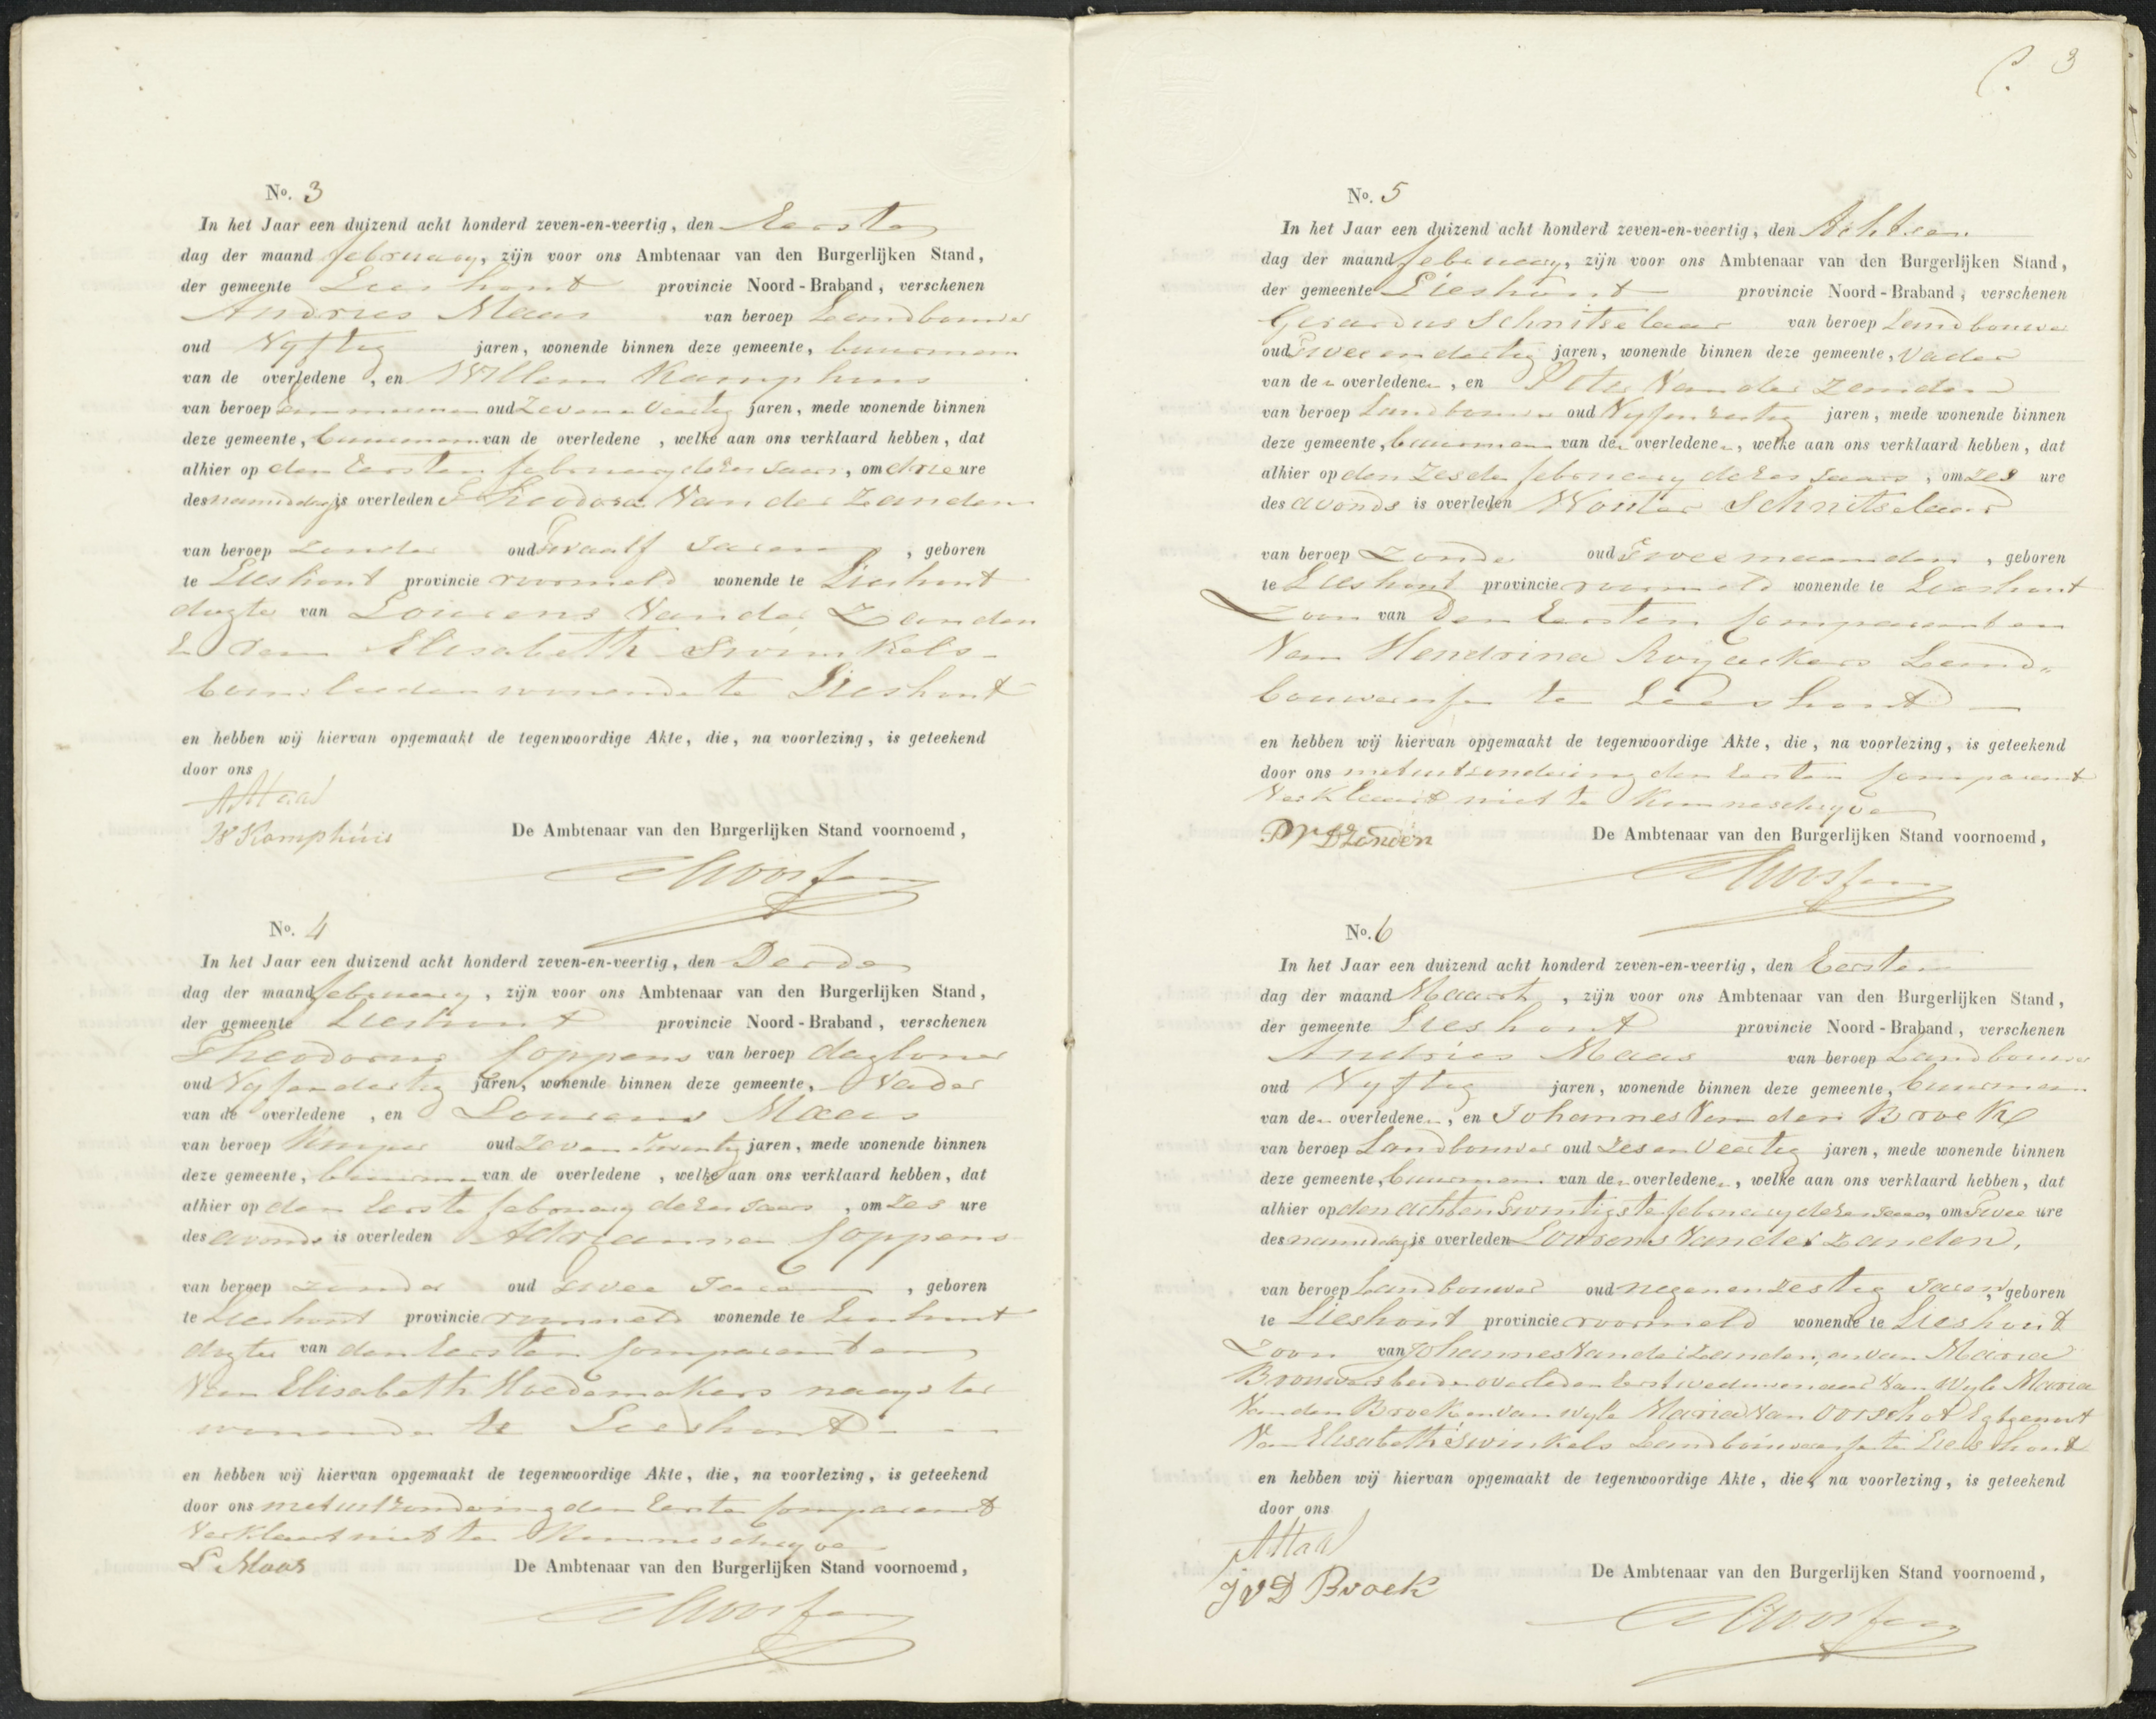 No. 3
In het Jaar een duizend acht honderd zeven-en-veertig, den Eersten
dag der maand february, zijn voor ons Ambtenaar van den Burgerlijken Stand,
der gemeente Lieshout provincie Noord-Braband, verschenen
Andries Maas van beroep Landbouwer
oud Vyftig jaren, wonende binnen deze gemeente, buurman
van de overledene, en Willem Kamphuis
van beroep oud Zevenenveertig jaren, mede wonende binnen
deze gemeente, buurman van de overledene, welke aan ons verklaard hebben, dat
alhier op den Eersten february dezes Jaars, om drie ure
des namiddags is overleden Theodora Van der Zanden
van beroep zonder oud Twaalf Jaren, geboren
te Lieshout provincie voormeld wonende te Lieshout
dogter van Lourens Van der Zanden
En van Elisabeth Swinkels
bouwlieden wonende te Lieshout
en hebben wij hiervan opgemaakt de tegenwoordige Akte, die, na voorlezing, is geteekend
door ons
A Maas
W Kamphuis
De Ambtenaar van den Burgerlijken Stand voornoemd,
No. 4
In het Jaar een duizend acht honderd zeven-en-veertig, den Derden
dag der maand february, zijn voor ons Ambtenaar van den Burgerlijken Stand,
der gemeente Lieshout provincie Noord-Braband, verschenen
Theodorus Coppens van beroep dagloner
oud Vyfendertig jaren, wonende binnen deze gemeente, Vader
van de overledene, en Lourens Maas
van beroep Kuiper oud Zevenentwentig jaren, mede wonende binnen
deze gemeente, buurman van de overledene, welke aan ons verklaard hebben, dat
alhier op den Eersten february dezes Jaars, om zes ure
des avonds is overleden Adrianna Coppens
van beroep zonder oud twee Jaren, geboren
te Lieshout provincie voormeld wonende te Lieshout
dogter van den Eersten Comparant en
Van Elisabeth Hoedemakers naayster
wonende te Lieshout
en hebben wij hiervan opgemaakt de tegenwoordige Akte, die, na voorlezing, is geteekend
door ons met uitzondering den Eersten Comparant
Verklaart niet te Kunne schryve
L Maas
De Ambtenaar van den Burgerlijken Stand voornoemd,
3
No. 5
In het Jaar een duizend acht honderd zeven-en-veertig, den Achtsen
dag der maand february, zijn voor ons Ambtenaar van den Burgerlijken Stand,
der gemeente Lieshout provincie Noord-Braband, verschenen
Gerardus Schnitselaar van beroep Landbouwer
oud Tweeendertig jaren, wonende binnen deze gemeente, Vader
van de overledene, en Peter Van der Zanden
van beroep Landbouwer oud Vyfenzestig jaren, mede wonende binnen
deze gemeente, buurman van de overledene, welke aan ons verklaard hebben, dat
alhier op den Zesden february dezes Jaars, om zes ure
des avonds is overleden Wouter Schnitselaar
van beroep Zonder oud Twee maanden, geboren
te Lieshout provincie voormeld wonende te Lieshout
Zoon van Den Eersten Comparant en
Van Hendrina Royackers Land=
bouweresse te Lieshout
en hebben wij hiervan opgemaakt de tegenwoordige Akte, die, na voorlezing, is geteekend
door ons met uitzondering den Eersten Comparant
Verklaart niet te Kunne schryve
P V D Zanden
De Ambtenaar van den Burgerlijken Stand voornoemd,
No. 6
In het Jaar een duizend acht honderd zeven-en-veertig, den Eersten
dag der maand Maart, zijn voor ons Ambtenaar van den Burgerlijken Stand,
der gemeente Lieshout provincie Noord-Braband, verschenen
Andries Maas van beroep Landbouwer
oud Vyftig jaren, wonende binnen deze gemeente, buurman
van de overledene, en Johannes Van den Broek
van beroep Landbouwer oud Zesenveertig jaren, mede wonende binnen
deze gemeente, buurman van de overledene, welke aan ons verklaard hebben, dat
alhier op den achtentwintigste february dezes Jaars, om Twee ure
des namiddags is overleden Lourens Van der Zanden,
van beroep Landbouwer oud negenenzestig Jaren, geboren
te Lieshout provincie voormeld wonende te Lieshout
Zoon van Johannes Van der Zanden, en van Maria
Brouwers beide overleden Eerst weduwenaar Van Wyle Maria
Van den Broek en van wyle Maria Van Oorschot Egtgenoot
Van Elisabeth Swinkels Landbouweresse te Lieshout
en hebben wij hiervan opgemaakt de tegenwoordige Akte, die, na voorlezing, is geteekend
door ons
A Maas
J V D Broek
De Ambtenaar van den Burgerlijken Stand voornoemd,